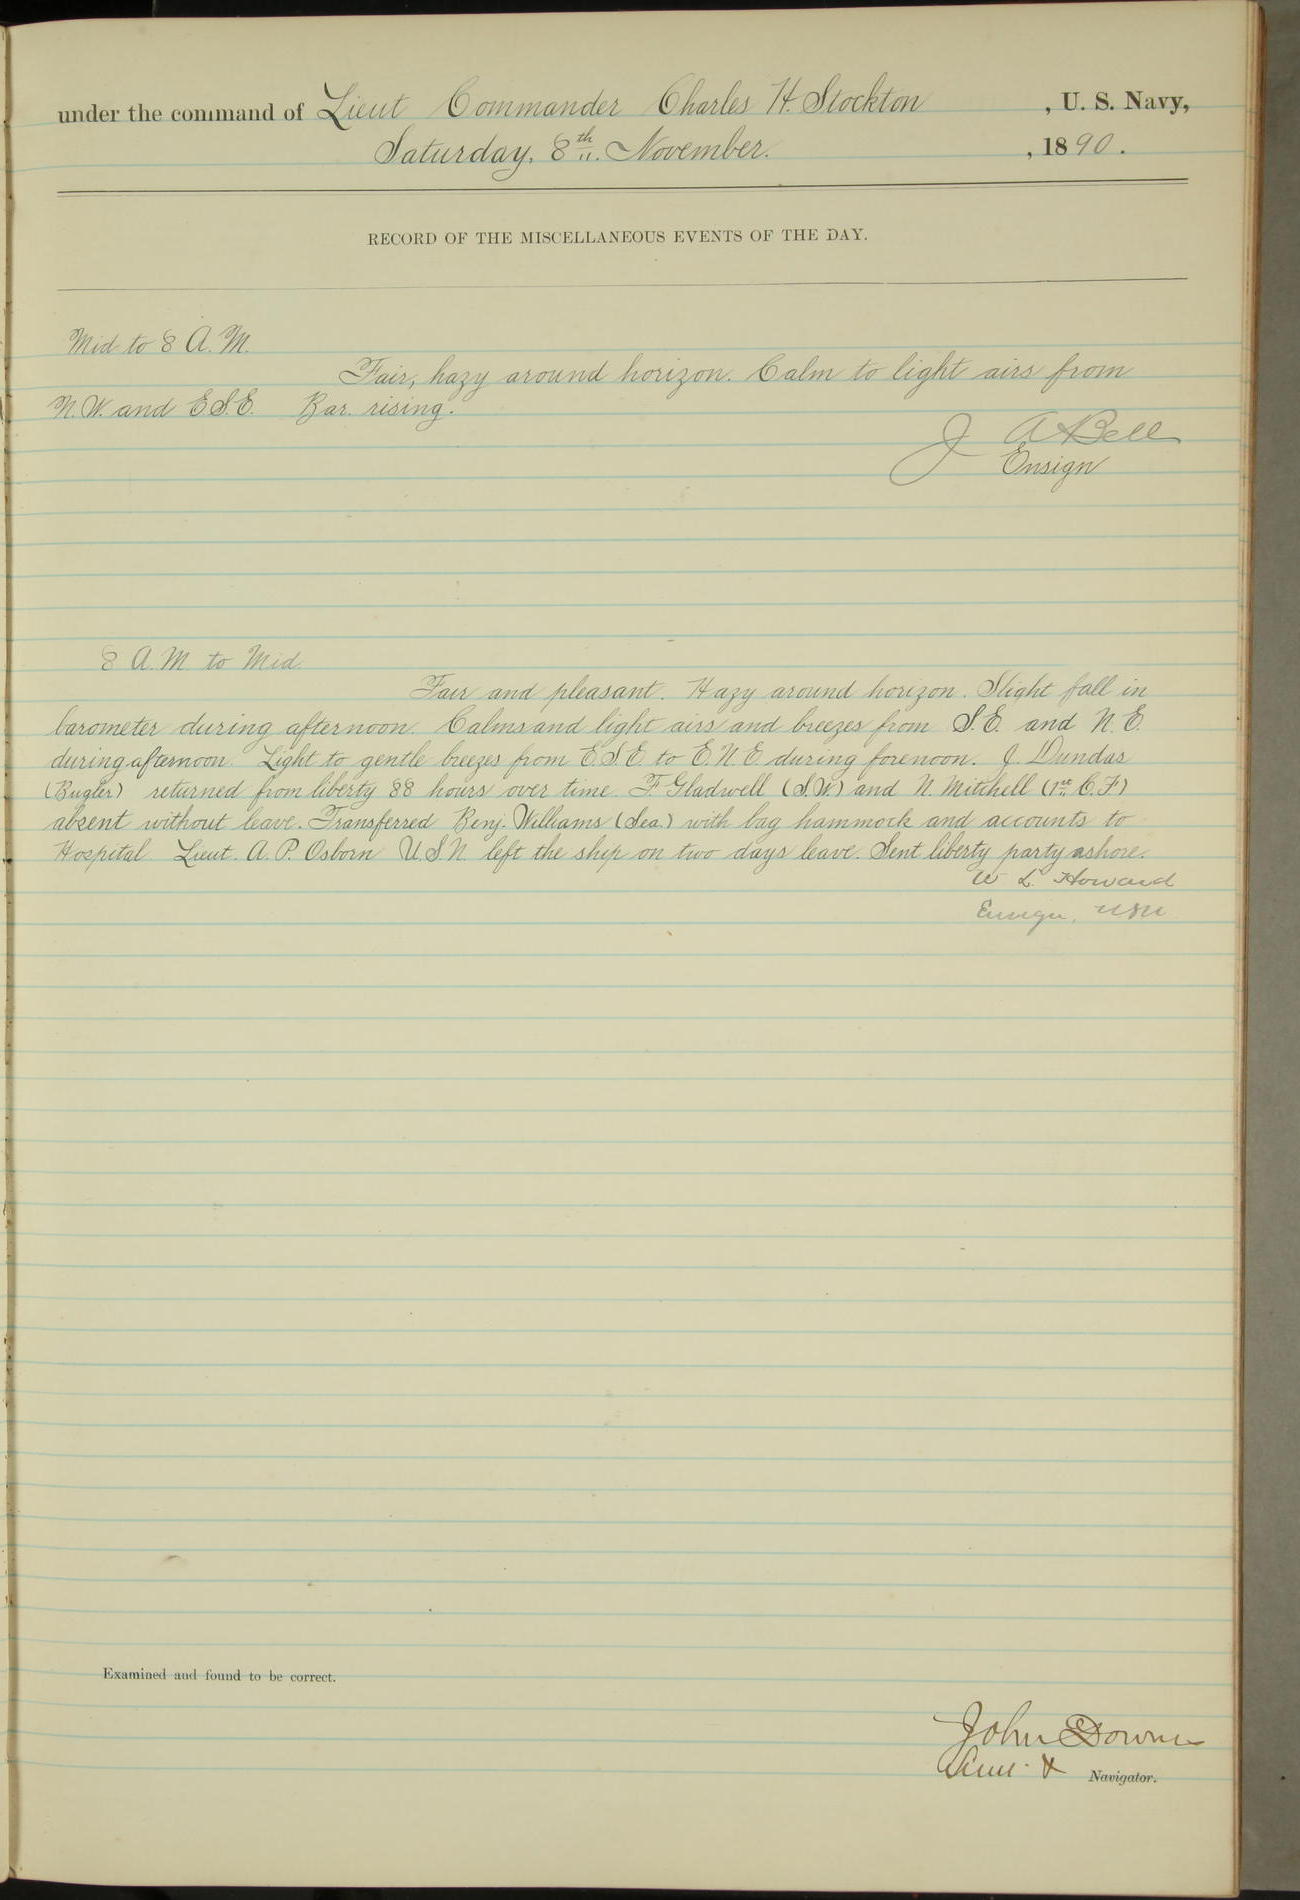 under the command of Lieut Commander Charles H. Stockton, U. S. Navy,
Saturday, 8th November. , 1890.
RECORD OF THE MISCELLANEOUS EVENTS OF THE DAY.
Mid to 8 A.M.
Fair, hazy around horizon. Calm to light airs from
N.W. and E.S.E. Bar. rising.
J A Bell
Ensign
8 A.M. to Mid.
Fair and pleasant. Hazy around horizon. Slight fall in
barometer during afternoon. Calms and light airs and breezes from S.E. and N.E.
during afternoon. Light to gentle breezes from E.S.E. to E.N.E. during forenoon. J. Dundas
(Bugler) returned from liberty 88 hours over time. F Gladwell (S.W.) and N. Mitchell (1st C.F.)
absent without leave. Transferred Benj. Williams (Sea.) with bag hammock and accounts to
Hospital Lieut. A. P. Osborn U.S.N. left the ship on two days leave. Sent liberty party ashore.
W L Howard
Ensign, USN
Examined and found to be correct.
John Downes
Lieut. & Navigator.